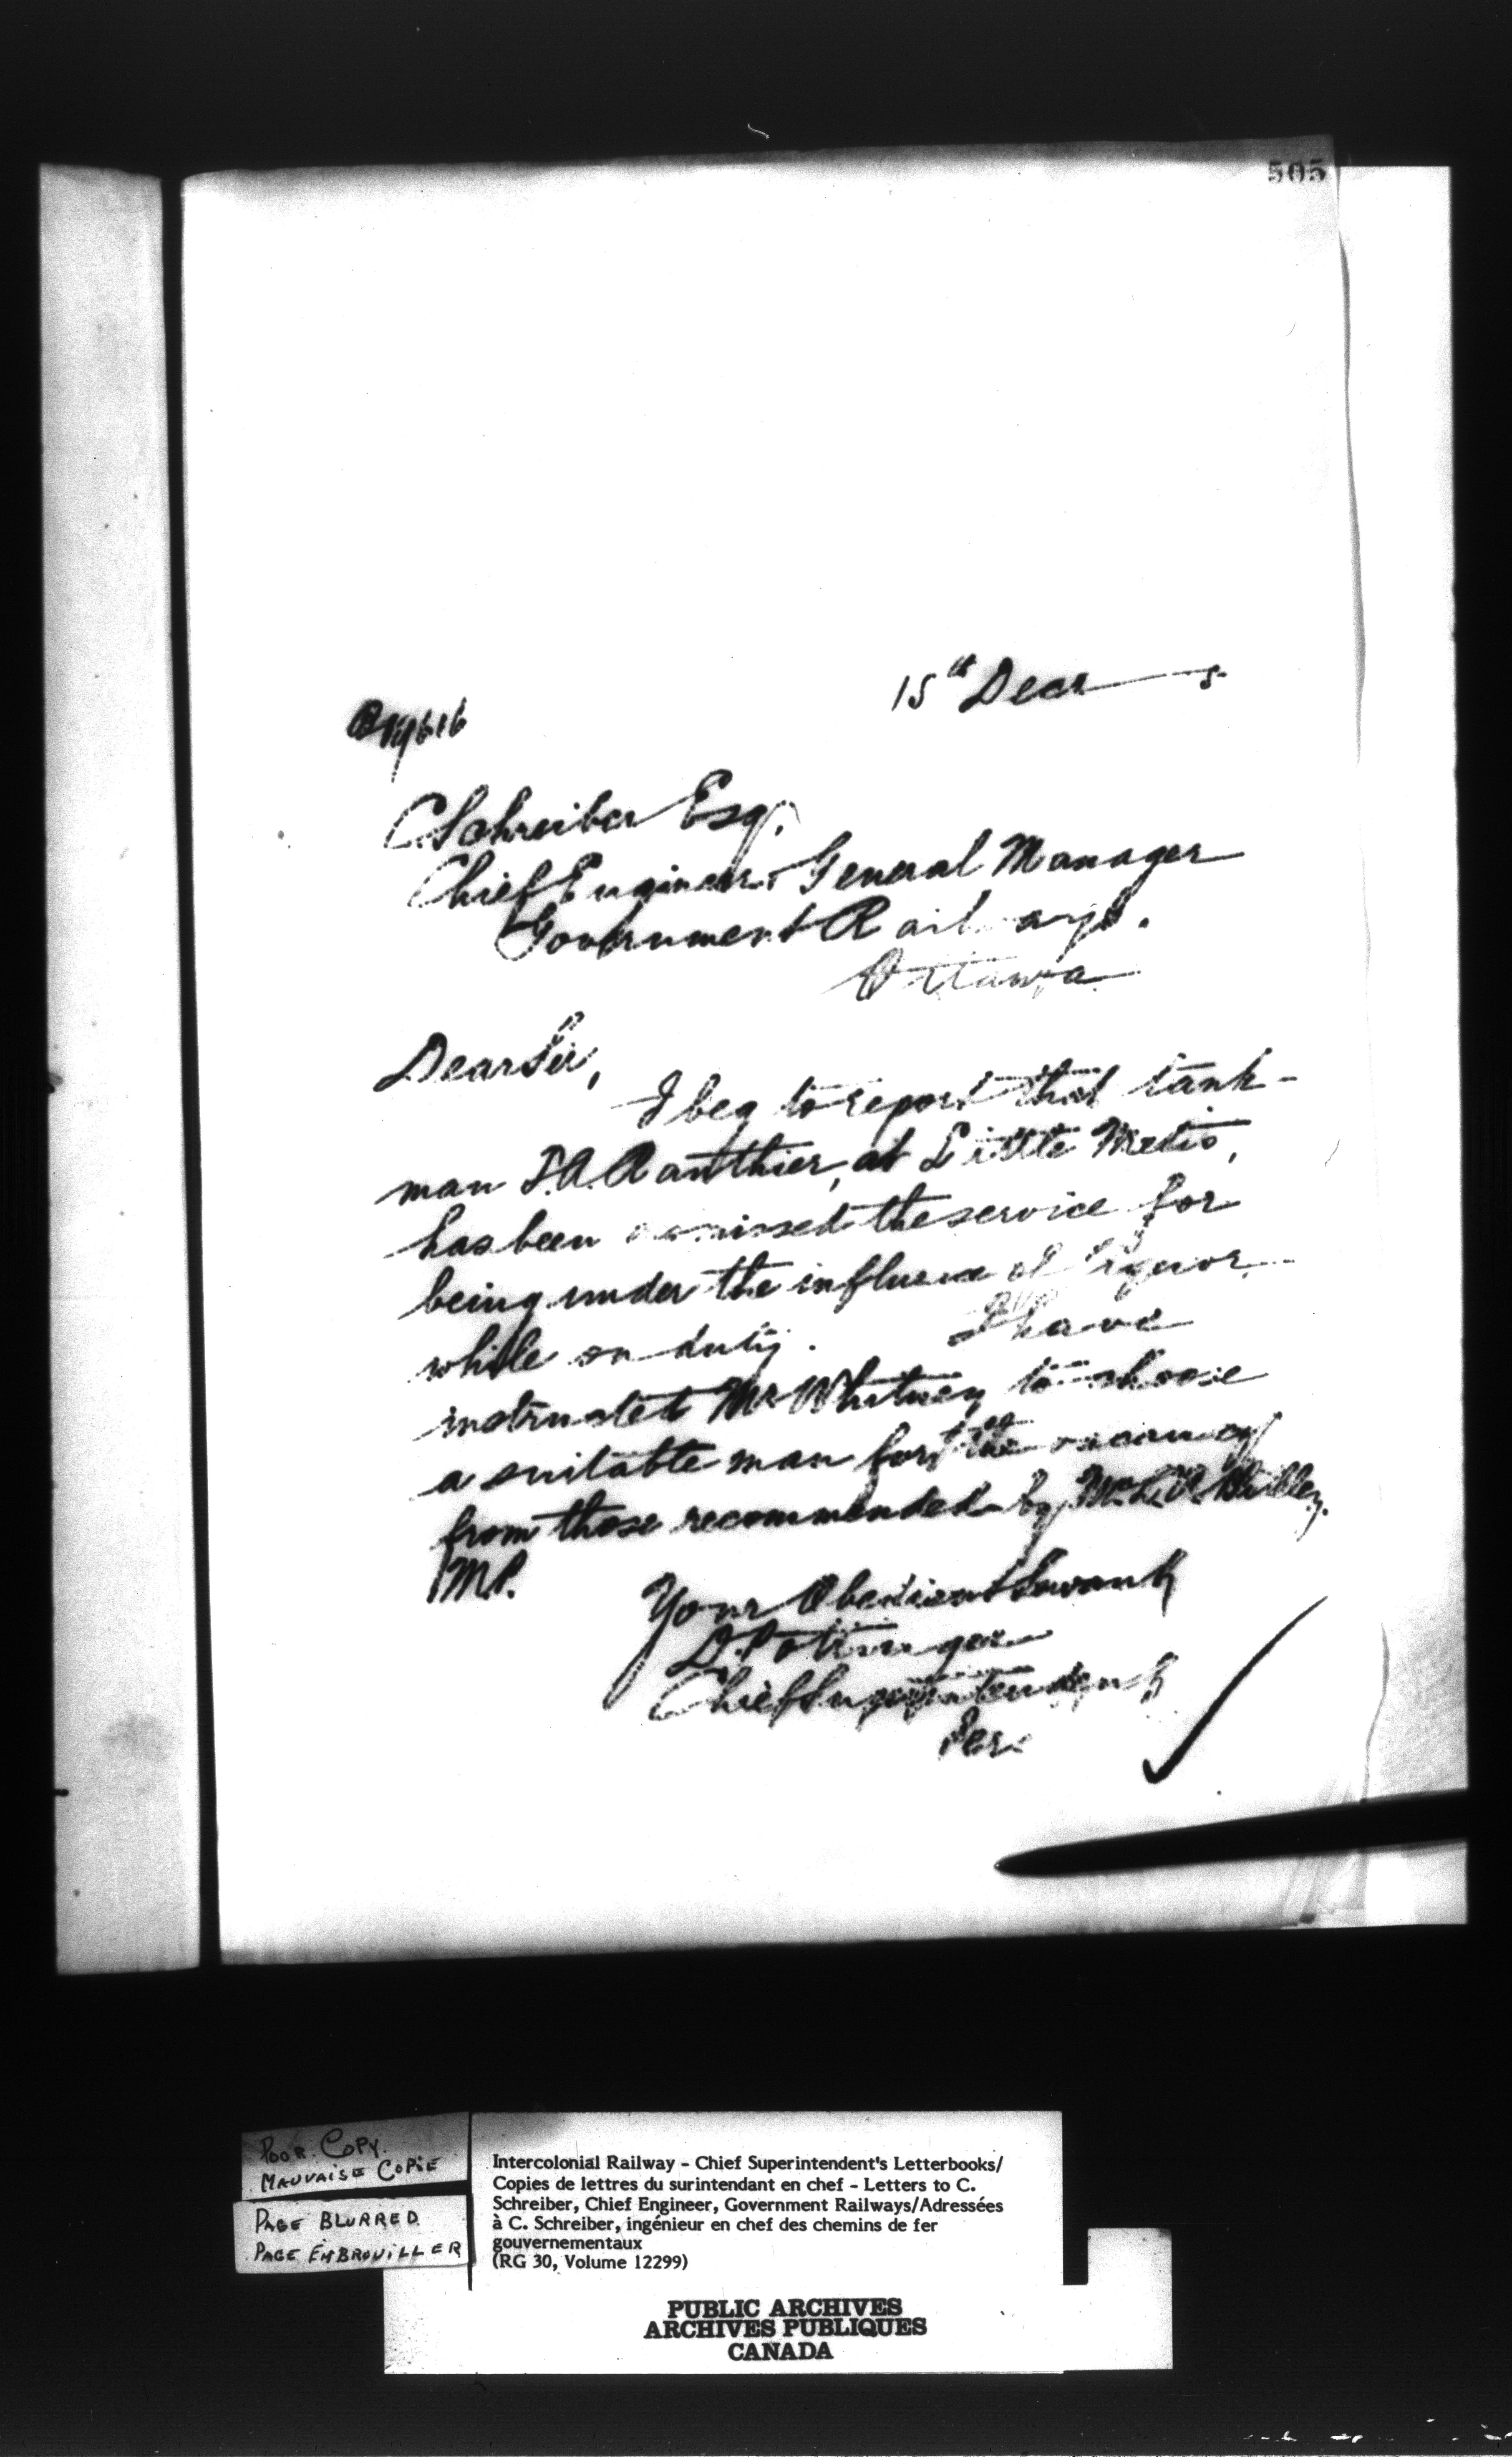 505
15th Decr 5
C Schreiber Esq.
Chief Engineer & General Manager
Government Railways.
Ottawa
Dear Sir,
I beg to report that tank-
man J.A. Ranthier, at Little Metis,
has been dismissed the service for
being under the influence of liquor
while on duty. I have
instructed Mr Whitney to choose
a suitable man for the vacancy
from those recommended by Mr
M.P.
Your Obedient Servant
D. Pottinger
Chief Superintendent
Per.
POOR COPY.
MAUVAISE COPIE
PAGE BLURRED
PAGE EMBROUILLER
Intercolonial Railway - Chief Superintendent's Letterbooks/
Copies de lettres du surintendant en chef - Letters to C.
Schreiber, Chief Engineer, Government Railways/Adressées
à C. Schreiber, ingénieur en chef des chemins de fer
gouvernementaux
(RG 30, Volume 12299)
PUBLIC ARCHIVES
ARCHIVES PUBLIQUES
CANADA